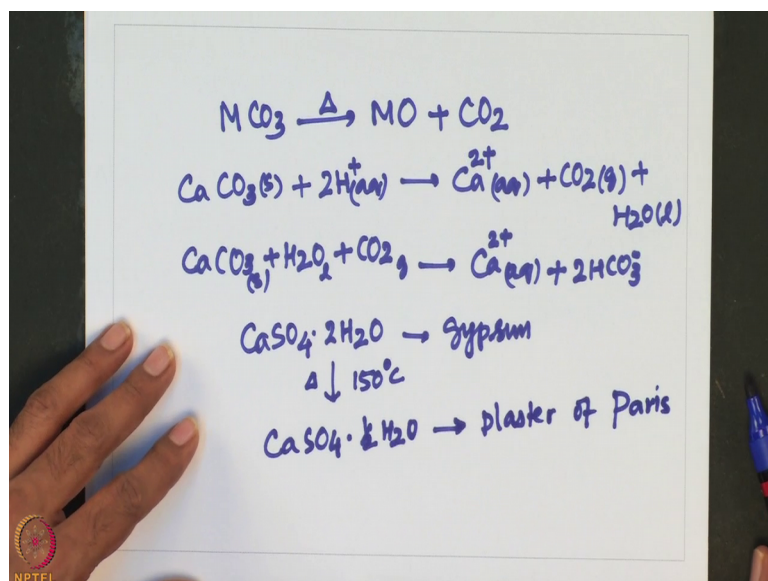 MCO3 —Δ→ MO + CO2
CaCO3(s) + 2H+(aq) → Ca2+(aq) + CO2(g) +
H2O(l)
CaCO3(s) + H2Ol + CO2g → Ca2+(aq) + 2HCO3-
CaSO4·2H2O → Gypsum
Δ ↓ 150°C
CaSO4·½H2O → plaster of Paris
NPTEL